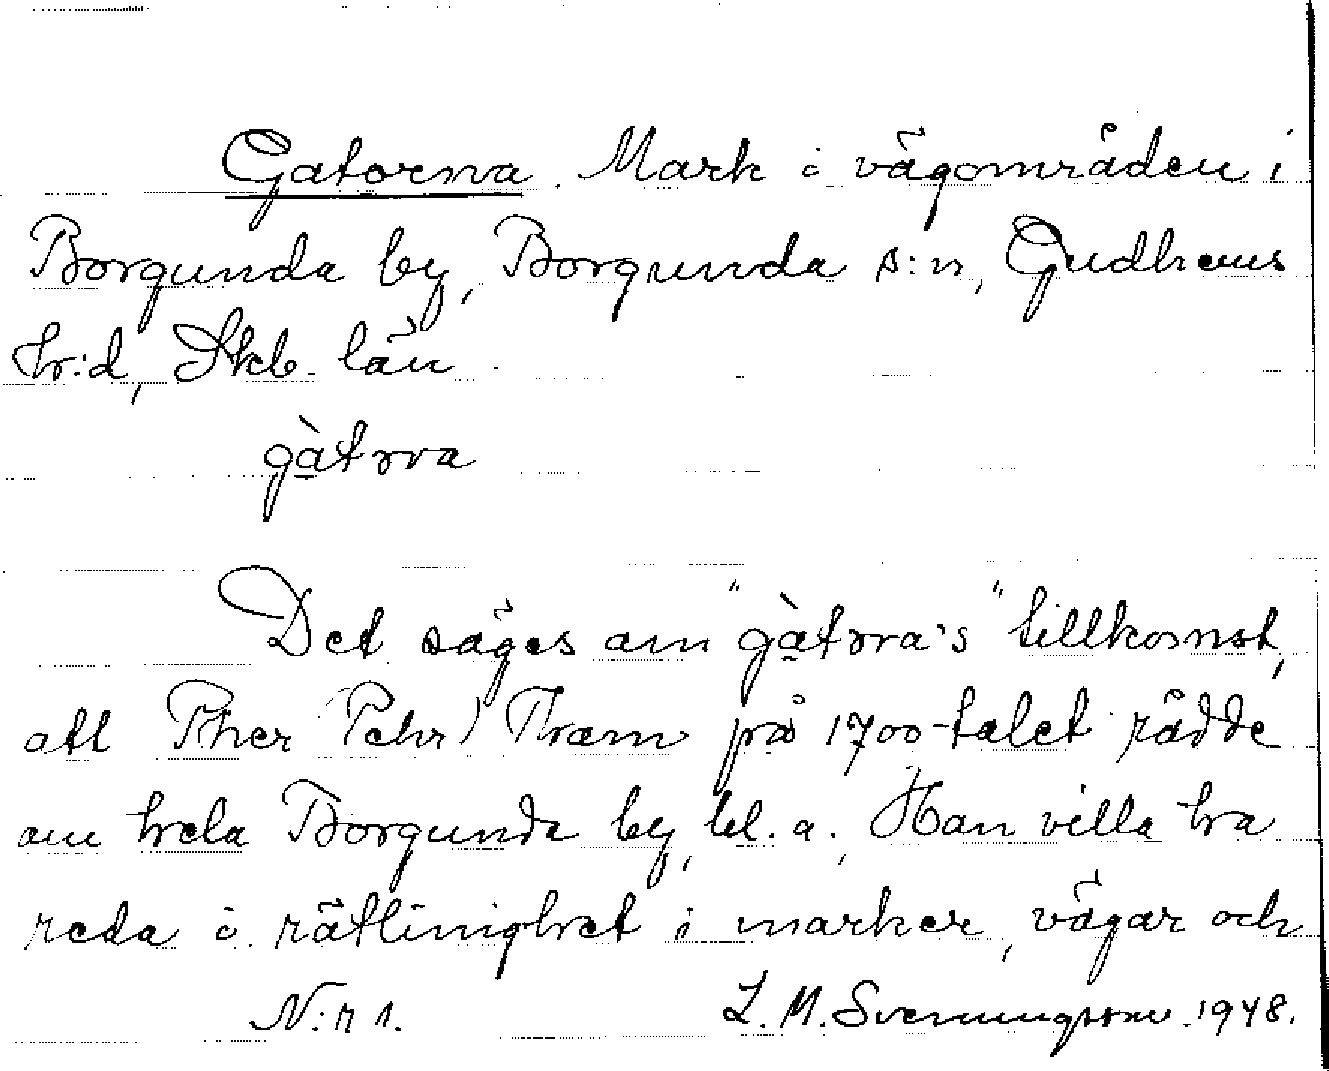 Gatorna. Mark å vägområden i
Borgunda by, Borgunda s:n, Gudhems
hr:d, Skb. län.
gàtora
Det säges om "gàtora's" tillkomst,
att Pher (Pehr) Thram på 1700-talet rådde
om hela Borgunda by, bl. a. Han ville ha
reda å rätlinighet i marker, vägar och
N:r 1. L. M. Svenungsson. 1948.